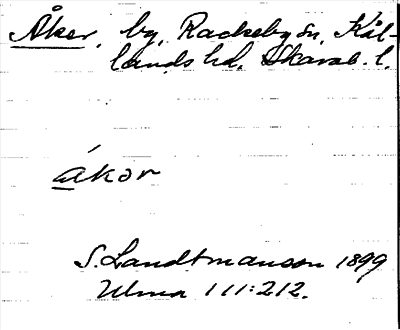 Åker, by, Rackeby sn, Kål-
lands hd, Skarab. l.
ákər
S. Landtmanson 1899
Ulma 111:212.